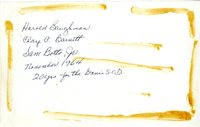 Harold Baughman
Clay A. Barnett
Sam Botts Jr
November 1964
20 yrs for the Davis SCD